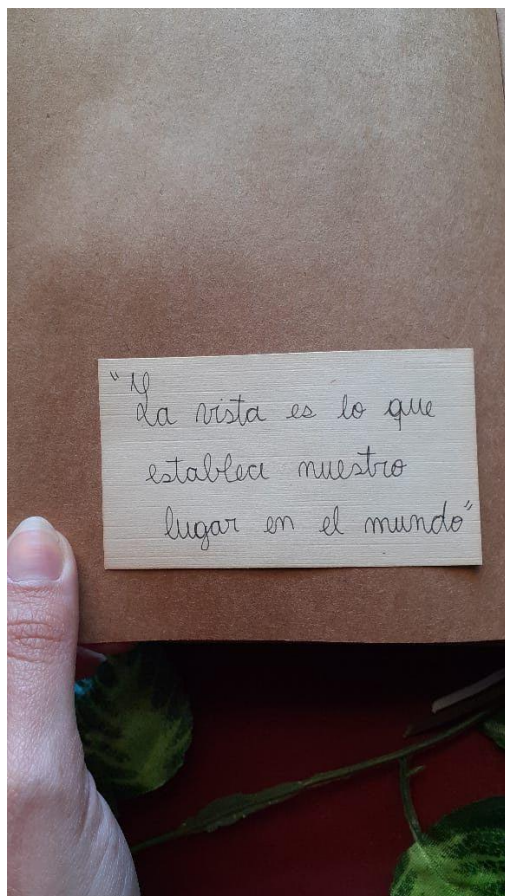 "La vista es lo que
establece nuestro
lugar en el mundo"